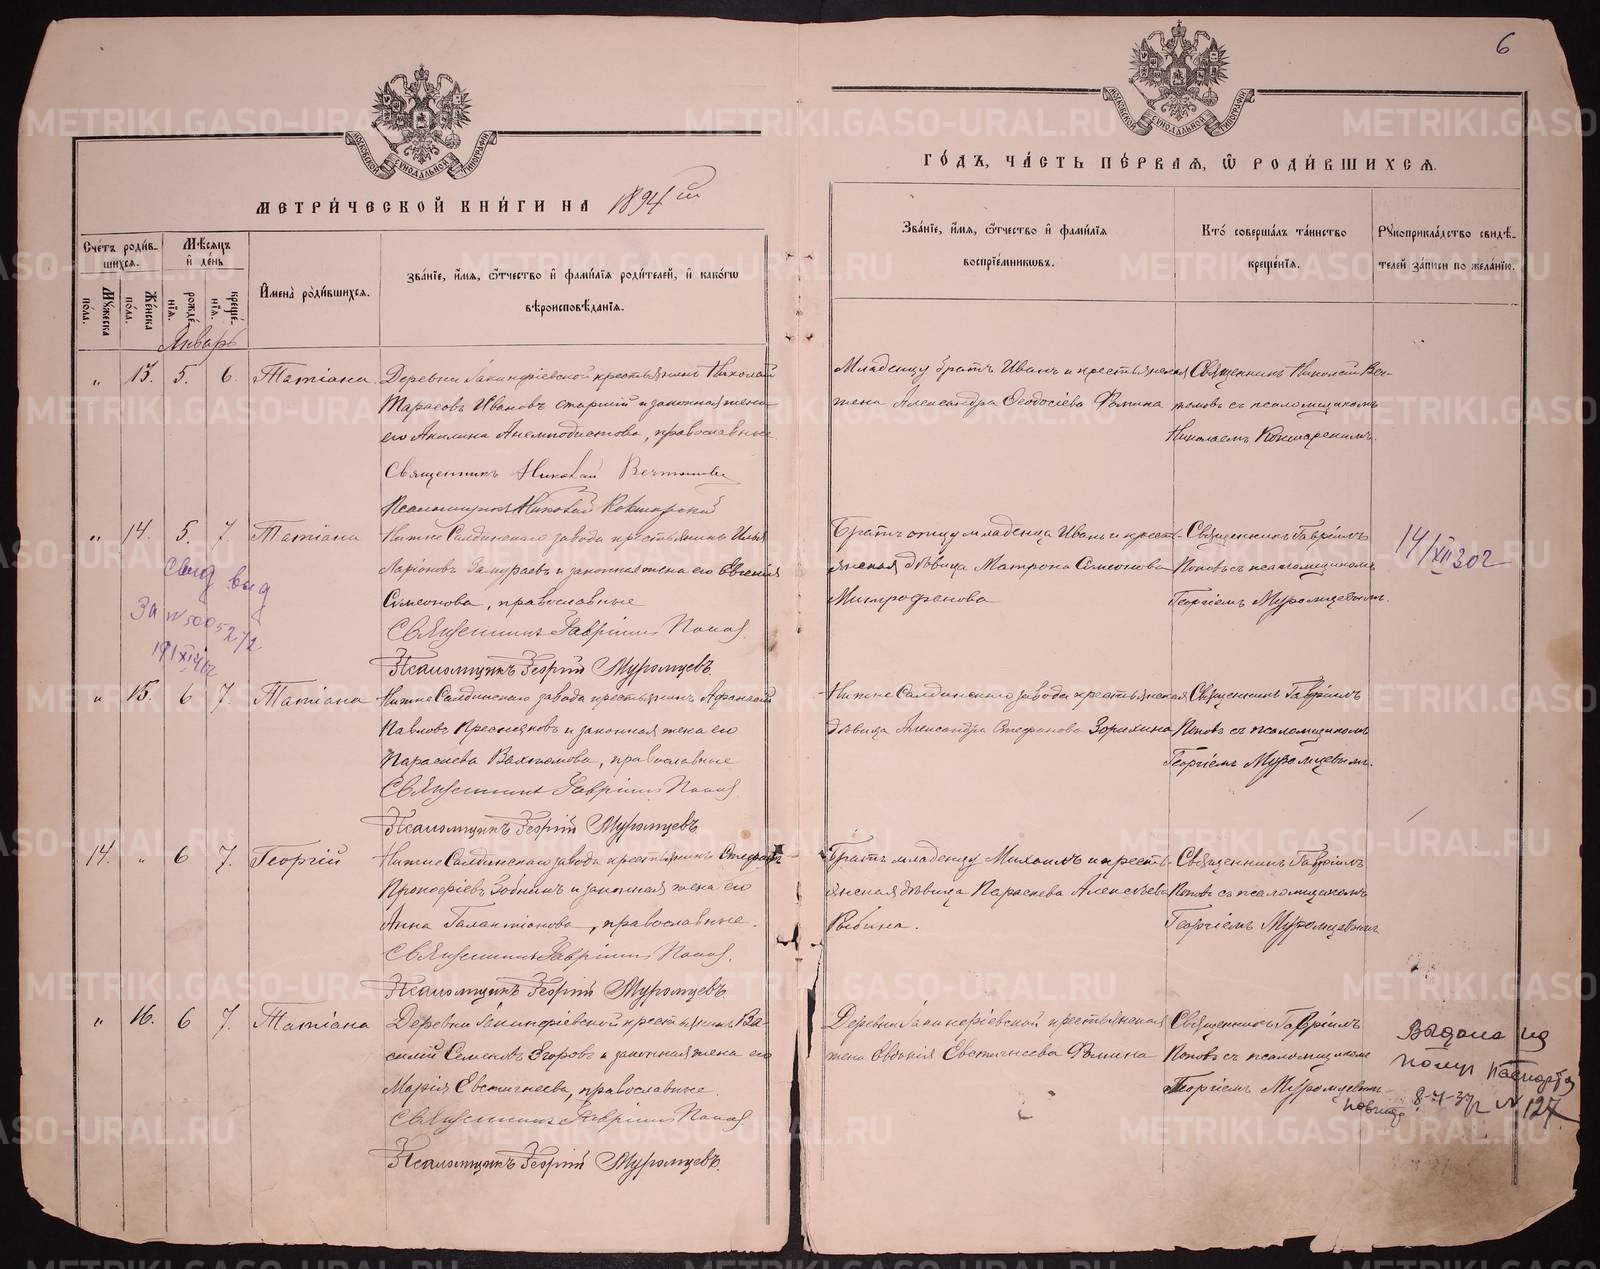 6
МОСКОВСКОЙ СѴНОДАЛЬНОЙ ТИПОГРАФІИ
МОСКОВСКОЙ СѴНОДАЛЬНОЙ ТИПОГРАФІИ
МЕТРИ́ЧЕСКОЙ КНИ́ГИ НА 1894 ій
ГО́ДЪ, ЧА́СТЬ ПЕ́РВАЯ, Ѿ РОДИ́ВШИХСЯ.
Сче́тъ роди́в-
шихся.
Му́жеска по́ла.
Же́нска по́ла.
Мѣ́сяцъ и҆ де́нь
рожде́нїя.
креще́нїя.
И҆мена̀ роди́вшихся.
Зва́нїе, и҆́мя, ѻ҆́тчество и҆ фами́лїя роди́телей, и҆ како́гѡ
вѣроисповѣ́данїя.
Зва́нїе, и҆́мя, ѻ҆́тчество и҆ фами́лїя
воспрїе́мниковъ.
Кто̀ соверша́лъ та́инство
креще́нїя.
Рꙋкоприкла́дство свидѣ́-
телей за́писи по жела́нїю.
Январь
" 13. 5. 6. Татіана
Деревни Гакинфіевской крестьянинъ Николай
Тарасовъ Ивановъ старшій и законная жена
его Акилина Анемподистова, православные
Священникъ Николай
Псаломщикъ Николай
Младенцу братъ Иванъ и крестьянская
жена Александра Ѳеодосіева Фомина
Священникъ Николай
съ псаломщикомъ
Николаемъ
" 14. 5. 7. Татіана
Нижне Салдинскаго завода крестьянинъ Илья
Ларіоновъ Замураевъ и законная жена его Евгенія
Симеонова, православные
Священникъ Гавріилъ Поповъ.
Псаломщикъ Георгій Муромцевъ.
Братъ отцу младенца Иванъ и кресть-
янская дѣвица Матрона Семеонова
Митрофанова
Священникъ Гавріилъ
Поповъ съ псаломщикомъ
Георгіемъ Муромцевымъ.
14/XII 30г
свид выд
За №
" 15. 6 7. Татіана
Нижне Салдинскаго завода крестьянинъ Афанасій
Павловъ Пресняковъ и законная жена его
Параскева, православные
Священникъ Гавріилъ Поповъ.
Псаломщикъ Георгій Муромцевъ
Нижне Салдинскаго завода крестьянская
дѣвица Александра Стефанова Зорихина
Священникъ Гавріилъ
Поповъ съ псаломщикомъ
Георгіемъ Муромцевымъ.
14. " 6 7. Георгій
Нижне Салдинскаго завода крестьянинъ Стефанъ
Прокофіевъ Зобнинъ и законная жена его
Анна Галактіонова, православные.
Священникъ Гавріилъ Поповъ.
Псаломщикъ Георгій Муромцевъ.
Братъ младенцу Михаилъ и кресть-
янская дѣвица Параскева Алексѣева
Рыбина.
Священникъ Гавріилъ
Поповъ съ псаломщикомъ
Георгіемъ Муромцевымъ
" 16. 6 7. Татіана
Деревни Гакинфіевской крестьянинъ Ва-
силій Семеновъ Егоровъ и законная жена его
Марія Евстигнеева, православные.
Священникъ Гавріилъ Поповъ.
Псаломщикъ Георгій Муромцевъ.
Деревни Гакинфіевской крестьянская
жена Евдокія Евстигнеева Фомина
Священникъ Гавріилъ
Поповъ съ псаломщикомъ
Георгіемъ Муромцевымъ
Выдана
паспорта
№ 127
METRIKI.GASO-URAL.RU